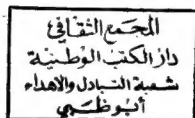 المجمع الثقافي
دار الكتب الوطنية
شعبة التبادل والاهداء
أبوظبي